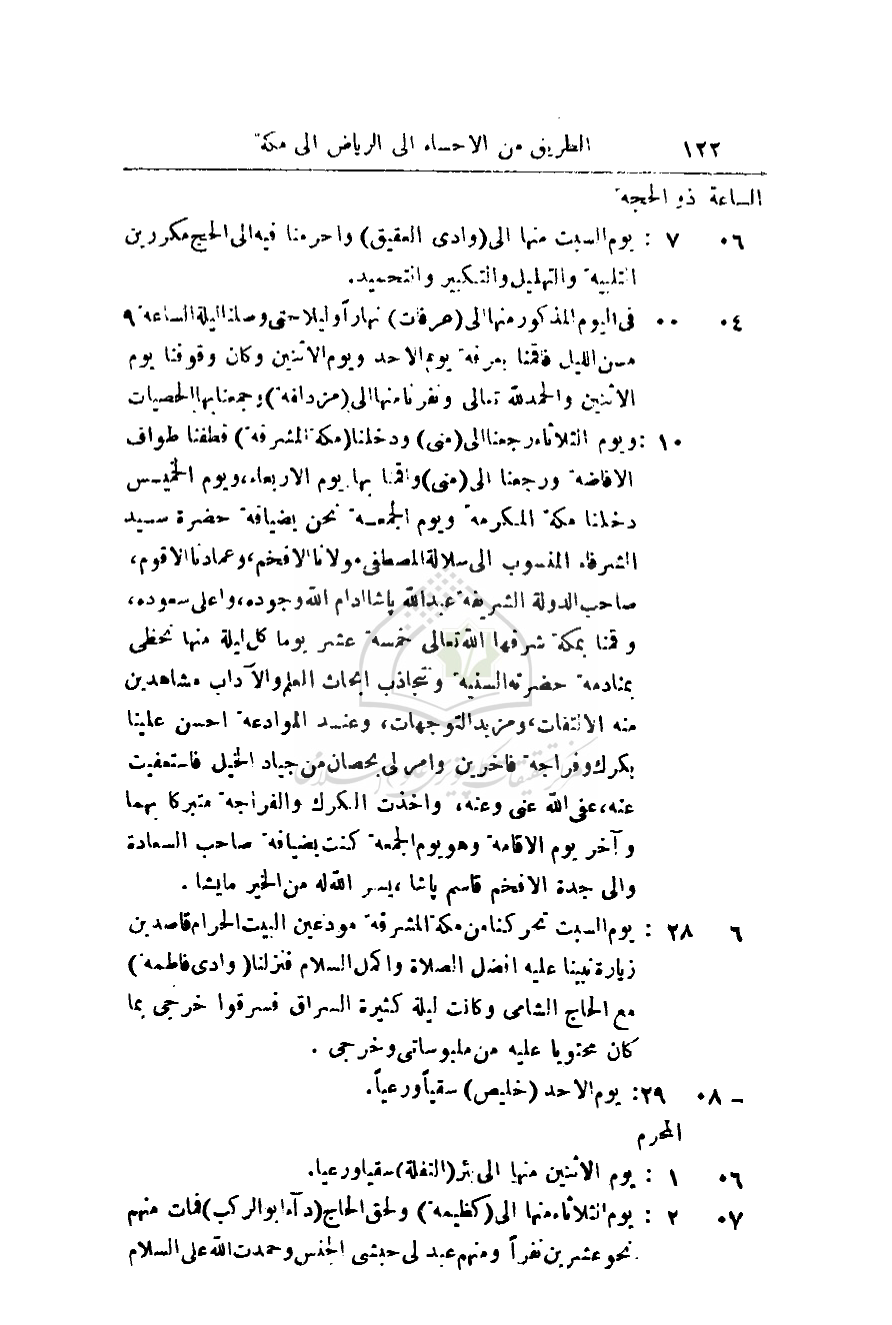 ١٢٢ الطريق من الاحساء الى الرياض الى مكة
الساعة ذو الحجة
٠٦ ٧ : يوم السبت منها الى (وادى العقيق) واحرمنا فيه الى الحج مكررين
التلبية والتهليل والتكبير والتحميد.
٠٤ ٠٠ فى اليوم المذكور منها الى (عرفات) نهاراً وليلا حتى وصلنا ليلة الساعة ٩
مـن الليل فاقمنا بعرفة يوم الاحد ويوم الاثنين وكان وقوفنا يوم
الاثنين والحمد لله تعالى ونفرنا منها الى (مزدافة) وجمعنا بها الحصيات
١٠ : ويوم الثلاثاء رجعنا الى (منى) ودخلنا (مكة المشرفة) فطفنا طواف
الافاضة ورجعنا الى (منى) واقمنا بها يوم الاربعاء، ويوم الخميـس
دخلنا مكة المكرمة ويوم الجمعـة نحن بضيافة حضرة سـيد
الشرفاء المنسوب الى سلالة المصطفى مولانا الافخم، وعمادنا الاقوم،
صاحب الدولة الشريفة عبدالله پاشا ادام الله وجوده، واعلى سعوده،
وقمنا بمكة شرفها الله تعالى خمسة عشر يوما كل ليلة منها نحظى
بمنادمة حضرته السنية ونتجاذب ابحاث العلم والآداب مشاهدين
منه الالتفات، ومزيد التوجهات، وعنـد الموادعة احسن علينا
بكرك وفراجة فاخرين وامر لى بحصان من جياد الخيل فاستعفيت
عنه، عفى الله عنى وعنه، واخذت الكرك والفراجة متبركا بهما
وآخر يوم الاقامة وهو يوم الجمعة كنت بضيافة صاحب السعادة
والى جدة الافخم قاسم پاشا ، يسر الله له من الخير مايشا .
٦ ٢٨ : يوم السبت تحركنا من مكة المشرفة مودعين البيت الحرام قاصدين
زيارة نبينا عليه افضل الصلاة واكمل السلام فنزلنا (وادى فاطمة)
مع الحاج الشامى وكانت ليلة كثيرة السراق فسرقوا خرجى بما
كان محتويا عليه من ملبوساتى وخرجى .
– ٠٨ ٢٩: يوم الاحد (خليص) سقياً ورعياً.
المحرم
٠٦ ١ : يوم الاثنين منها الى بئر (التفلة) سقيا ورعيا.
٠٧ ٢ : يوم الثلاثاء منها الى (كظيمة) ولحق الحاج (دآء ابو الركب) فمات منهم
نحو عشرين نفراً ومنهم عبد لى حبشى الجنس وحمدت الله على السلام